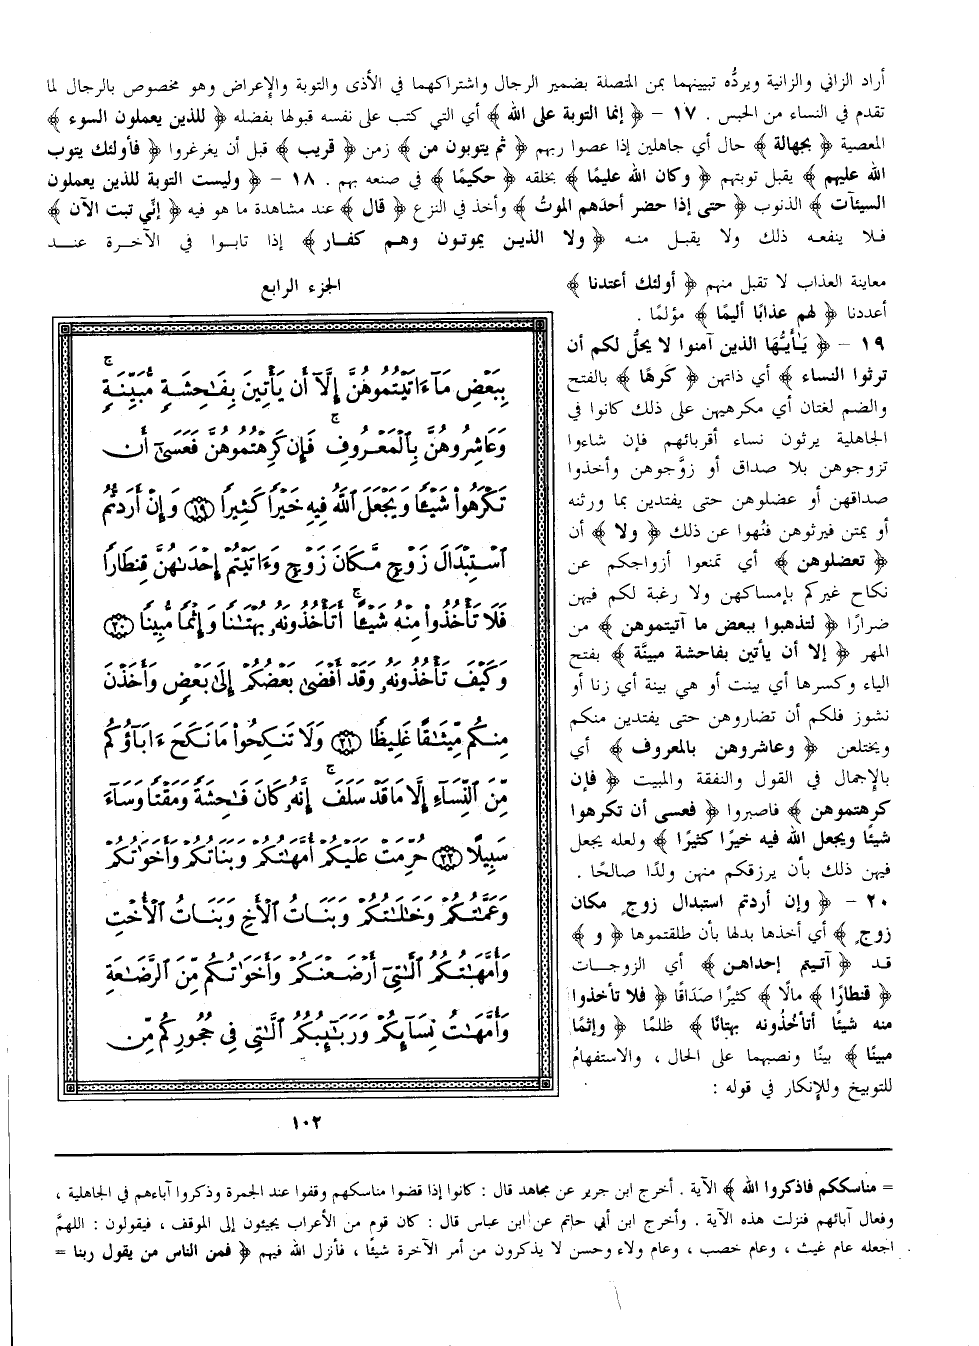 أراد الزاني والزانية ويردُّه تبيينهما بمن المتصلة بضمير الرجال واشتراكهما في الأذى والتوبة والإعراض وهو مخصوص بالرجال لما
تقدم في النساء من الحبس . ١٧ - ﴿ إنما التوبة على الله ﴾ أي التي كتب على نفسه قبولها بفضله ﴿ للذين يعملون السوء ﴾
المعصية ﴿ بجهالة ﴾ حال أي جاهلين إذا عصوا ربهم ﴿ ثم يتوبون من ﴾ زمن ﴿ قريب ﴾ قبل أن يغرغروا ﴿ فأولئك يتوب
الله عليهم ﴾ يقبل توبتهم ﴿ وكان الله عليمًا ﴾ بخلقه ﴿ حكيمًا ﴾ في صنعه بهم . ١٨ - ﴿ وليست التوبة للذين يعملون
السيئات ﴾ الذنوب ﴿ حتى إذا حضر أحدهم الموتُ ﴾ وأخذ في النزع ﴿ قال ﴾ عند مشاهدة ما هو فيه ﴿ إنّي تبت الآن ﴾
فلا ينفعه ذلك ولا يقبل منه ﴿ ولا الذين يموتون وهم كفار ﴾ إذا تابوا في الآخرة عند
معاينة العذاب لا تقبل منهم ﴿ أولئك أعتدنا ﴾
أعددنا ﴿ لهم عذابًا أليمًا ﴾ مؤلمًا .
١٩ - ﴿ يَٰأيُّهَا الذين آمنوا لا يحلُّ لكم أن
ترثوا النساء ﴾ أي ذاتهن ﴿ كَرهًا ﴾ بالفتح
والضم لغتان أي مكرهيهن على ذلك كانوا في
الجاهلية يرثون نساء أقربائهم فإن شاءوا
تزوجوهن بلا صداق أو زوَّجوهن وأخذوا
صداقهن أو عضلوهن حتى يفتدين بما ورثنه
أو يمتن فيرثوهن فنُهوا عن ذلك ﴿ ولا ﴾ أن
﴿ تعضلوهن ﴾ أي تمنعوا أزواجكم عن
نكاح غيركم بإمساكهن ولا رغبة لكم فيهن
ضرارًا ﴿ لتذهبوا ببعض ما آتيتموهن ﴾ من
المهر ﴿ إلا أن يأتين بفاحشة مبيَّنة ﴾ بفتح
الياء وكسرها أي بينت أو هي بينة أي زنا أو
نشوز فلكم أن تضاروهن حتى يفتدين منكم
ويختلعن ﴿ وعاشروهن بالمعروف ﴾ أي
بالإجمال في القول والنفقة والمبيت ﴿ فإن
كرهتموهن ﴾ فاصبروا ﴿ فعسى أن تكرهوا
شيئًا ويجعل الله فيه خيرًا كثيرًا ﴾ ولعله يجعل
فيهن ذلك بأن يرزقكم منهن ولدًا صالحًا .
٢٠ - ﴿ وإن أردتم استبدال زوجٍ مكان
زوجٍ ﴾ أي أخذها بدلها بأن طلقتموها ﴿ و ﴾
قد ﴿ آتيتم إحداهن ﴾ أي الزوجات
﴿ قنطارًا ﴾ مالًا كثيرًا صَدَاقًا ﴿ فلا تأخذوا
منه شيئًا أتأخُذُونه بهتانًا ﴾ ظلمًا ﴿ وإثمًا
مبينًا ﴾ بينًا ونصبهما على الحال ، والاستفهامُ
للتوبيخ وللإنكار في قوله :
الجزء الرابع
بِبَعْضِ مَآ ءَاتَيْتُمُوهُنَّ إِلَّآ أَن يَأْتِينَ بِفَٰحِشَةٍ مُّبَيِّنَةٍ ۚ
وَعَاشِرُوهُنَّ بِٱلْمَعْرُوفِ ۚ فَإِن كَرِهْتُمُوهُنَّ فَعَسَىٰٓ أَن
تَكْرَهُوا۟ شَيْـًٔا وَيَجْعَلَ ٱللَّهُ فِيهِ خَيْرًا كَثِيرًا ﴿١٩﴾ وَإِنْ أَرَدتُّمُ
ٱسْتِبْدَالَ زَوْجٍ مَّكَانَ زَوْجٍ وَءَاتَيْتُمْ إِحْدَىٰهُنَّ قِنطَارًا
فَلَا تَأْخُذُوا۟ مِنْهُ شَيْـًٔا ۚ أَتَأْخُذُونَهُۥ بُهْتَٰنًا وَإِثْمًا مُّبِينًا ﴿٢٠﴾
وَكَيْفَ تَأْخُذُونَهُۥ وَقَدْ أَفْضَىٰ بَعْضُكُمْ إِلَىٰ بَعْضٍ وَأَخَذْنَ
مِنكُم مِّيثَٰقًا غَلِيظًا ﴿٢١﴾ وَلَا تَنكِحُوا۟ مَا نَكَحَ ءَابَآؤُكُم
مِّنَ ٱلنِّسَآءِ إِلَّا مَا قَدْ سَلَفَ ۚ إِنَّهُۥ كَانَ فَٰحِشَةً وَمَقْتًا وَسَآءَ
سَبِيلًا ﴿٢٢﴾ حُرِّمَتْ عَلَيْكُمْ أُمَّهَٰتُكُمْ وَبَنَاتُكُمْ وَأَخَوَٰتُكُمْ
وَعَمَّٰتُكُمْ وَخَٰلَٰتُكُمْ وَبَنَاتُ ٱلْأَخِ وَبَنَاتُ ٱلْأُخْتِ
وَأُمَّهَٰتُكُمُ ٱلَّٰتِىٓ أَرْضَعْنَكُمْ وَأَخَوَٰتُكُم مِّنَ ٱلرَّضَٰعَةِ
وَأُمَّهَٰتُ نِسَآئِكُمْ وَرَبَٰٓئِبُكُمُ ٱلَّٰتِى فِى حُجُورِكُم مِّن
١٠٢
= مناسككم فاذكروا الله ﴾ الآية . أخرج ابن جرير عن مجاهد قال : كانوا إذا قضوا مناسكهم وقفوا عند الجمرة وذكروا آباءهم في الجاهلية ،
وفعال آبائهم فنزلت هذه الآية . وأخرج ابن أبي حاتم عن ابن عباس قال : كان قوم من الأعراب يجيئون إلى الموقف ، فيقولون : اللهمَّ
اجعله عام غيث ، وعام خصب ، وعام ولاء وحسن لا يذكرون من أمر الآخرة شيئًا ، فأنزل الله فيهم ﴿ فمن الناس من يقول ربنا =